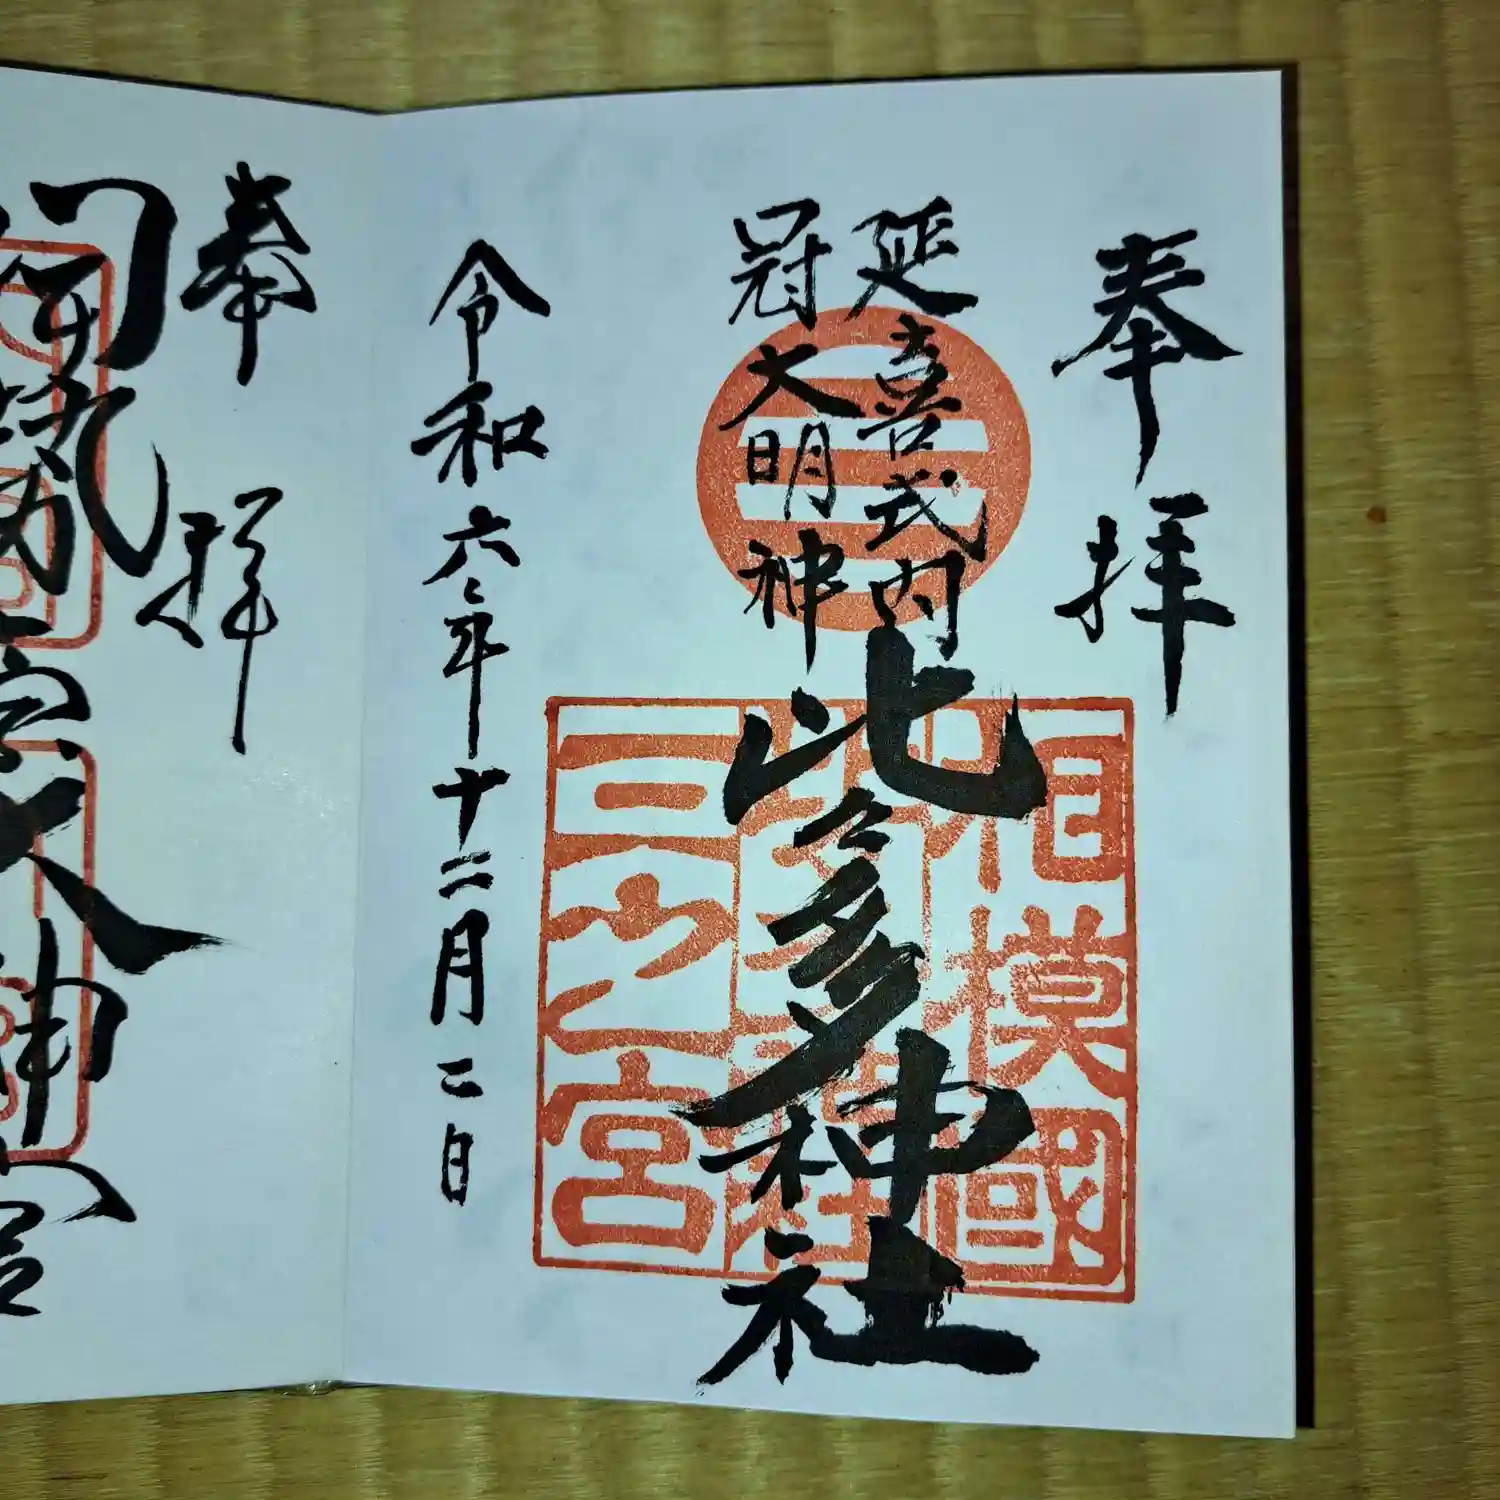 奉拝
延喜式内
冠大明神
比々多神社
相模國
三之宮
令和六年十二月二日
奉拝